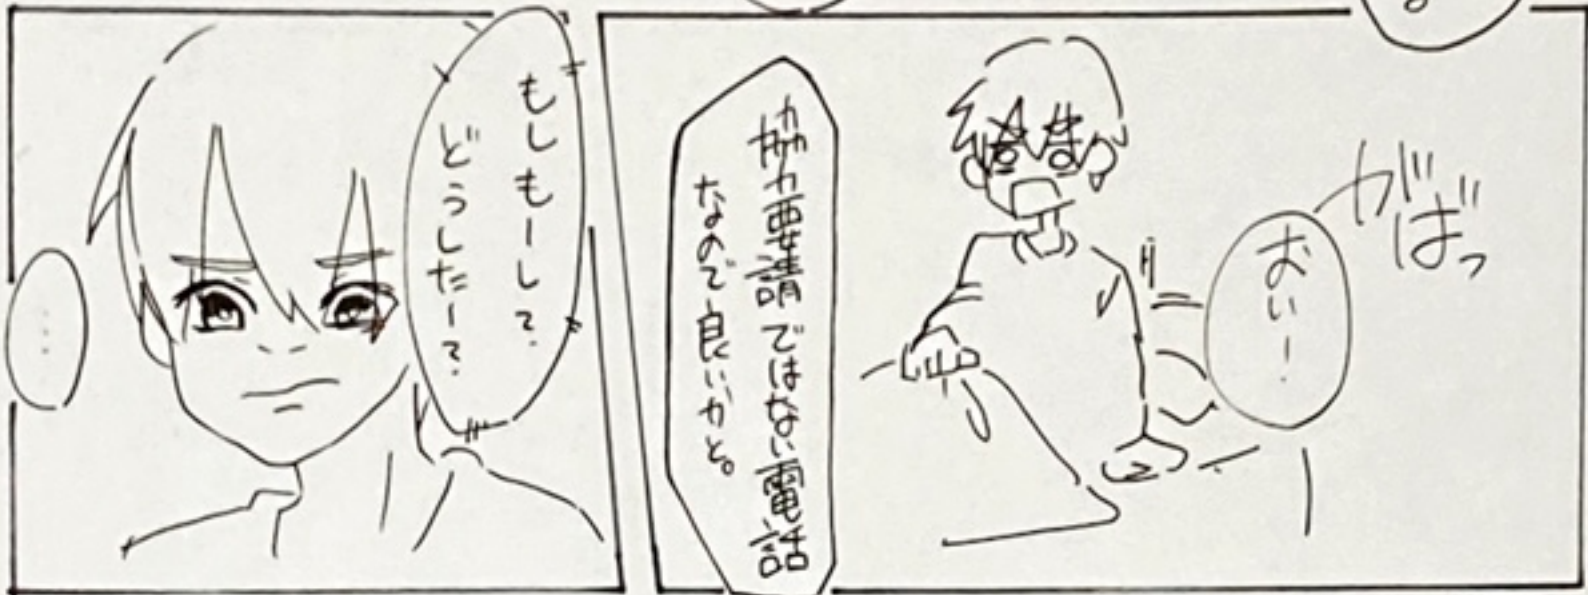 がばっ
おいー!
協力要請ではない電話
なので良いかと。
もしもーして?
どうしたー?
…